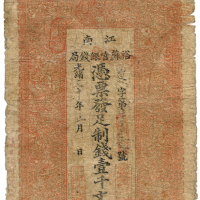 江南
裕蘇官銀錢局
字第 號
憑票發足制錢壹千文
光緒二十年二月 日